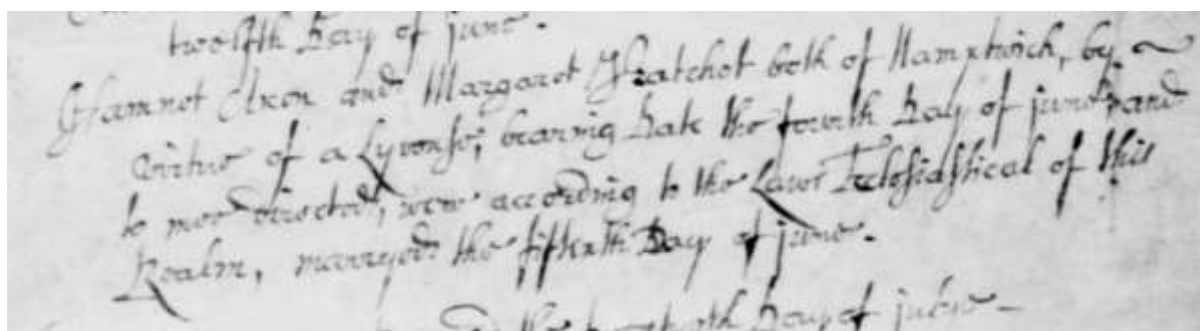 twelfth Day of june.
Hamnet and Margaret both of Namptwich, by
virtue of a Lycense, bearing Date the fourth Day of june, and
to mee directed, were according to the Lawes Ecclesiasticall of this
Realm, marryed the fifteenth Day of june.
the Day of julye